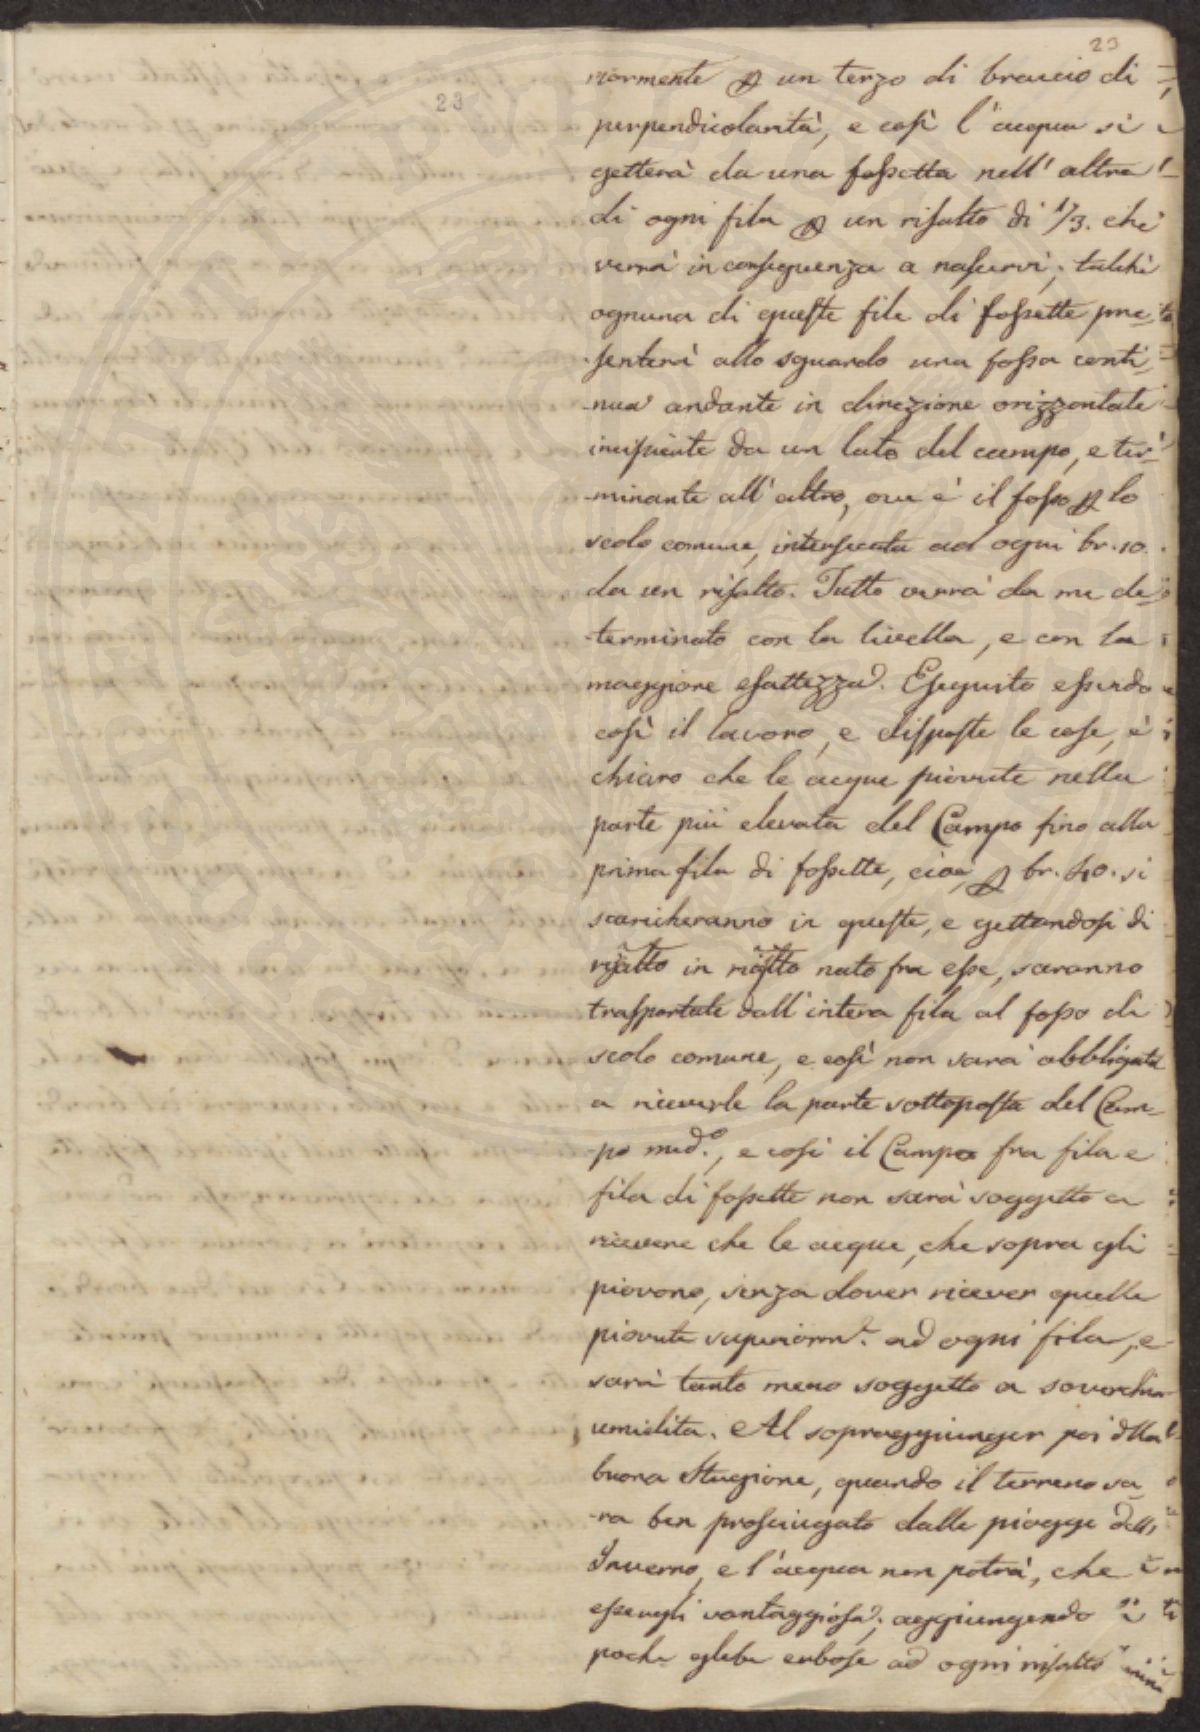 23
23
riormente p un terzo di braccio di
perpendicolarità, e così l'acqua si
getterà da una fossetta nell'altra
di ogni fila p un risalto di 1/3. che
verrà in conseguenza a nascervi; talchè
ognuna di queste file di fossette pre=
senterà allo sguardo una fossa conti=
-nua andante in direzione orizzontale
incipiente da un lato del campo, e ter=
-minante all'altro, ove è il fosso p lo
scolo comune, intersecata ad ogni br. 10.
da un risalto. Tutto verrà da me de=
-terminato con la livella, e con la
maggiore esattezza. Eseguito essendo
così il lavoro, e disposte le cose, è
chiaro che le acque piovute nella
parte più elevata del Campo fino alla
prima fila di fossette, cioè, p br. 40. si
scaricheranno in queste, e gettandosi di
risalto in risalto nato fra esse, saranno
trasportate dall'intera fila al fosso di
scolo comune, e così non sarà obbligata
a riceverle la parte sottoposta del Cam=
-po med.o, e così il Campo fra fila e
fila di fossette non sarà soggetto a
ricevere che le acque, che sopra gli
piovono, senza dover ricever quelle
piovute superiorm.e ad ogni fila, e
sarà tanto meno soggetto a soverchia
umidita. Al sopraggiunger poi della
buona Stagione, quando il terreno sa=
-ra ben prosciugato dalle piogge dell'
Inverno, e l'acqua non potrà, che
essergli vantaggiosa; aggiungendo
poche glebe erbose ad ogni risalto